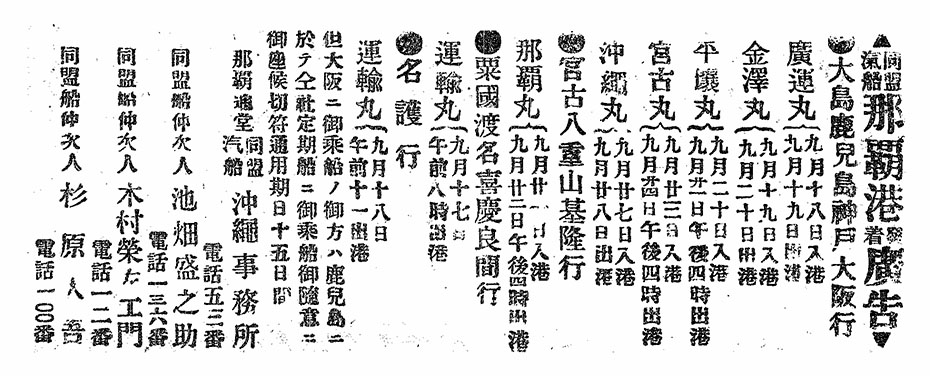 ▲同盟汽船那覇港發着廣告▼
●大島鹿兒島神戸大阪行
廣運丸 九月十八日入港
九月十九日出港
金澤丸 九月十九日入港
九月二十日出港
平壤丸 九月二十日入港
九月廿一日午後四時出港
宮古丸 九月廿三日入港
九月廿四日午後四時出港
沖繩丸 九月廿七日入港
九月廿八日出港
●宮古八重山基隆行
那覇丸 九月廿一日入港
九月廿二日午後四時出港
●粟國渡名喜慶良間行
運輸丸 九月十七日
午前八時出港
●名護行
運輸丸 九月十八日
午前十一出港
但大阪ニ御乘船ノ御方ハ鹿兒島ニ
於テ仝社定期船ニ御乘船御隨意ニ
御座候切符通用期日十五日間
那覇通堂 同盟汽船 沖繩事務所
電話五三番
同盟船仲次人 池畑盛之助
電話一三六番
同盟船仲次人 木村榮左エ門
電話一二番
同盟船仲次人 杉原人吾
電話一〇〇番